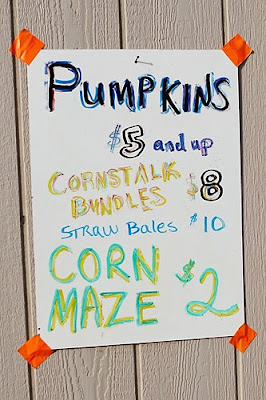 PUMPKINS
$5 and up
CORNSTALK $8
BUNDLES
STRAW Bales $10
CORN
MAZE $2